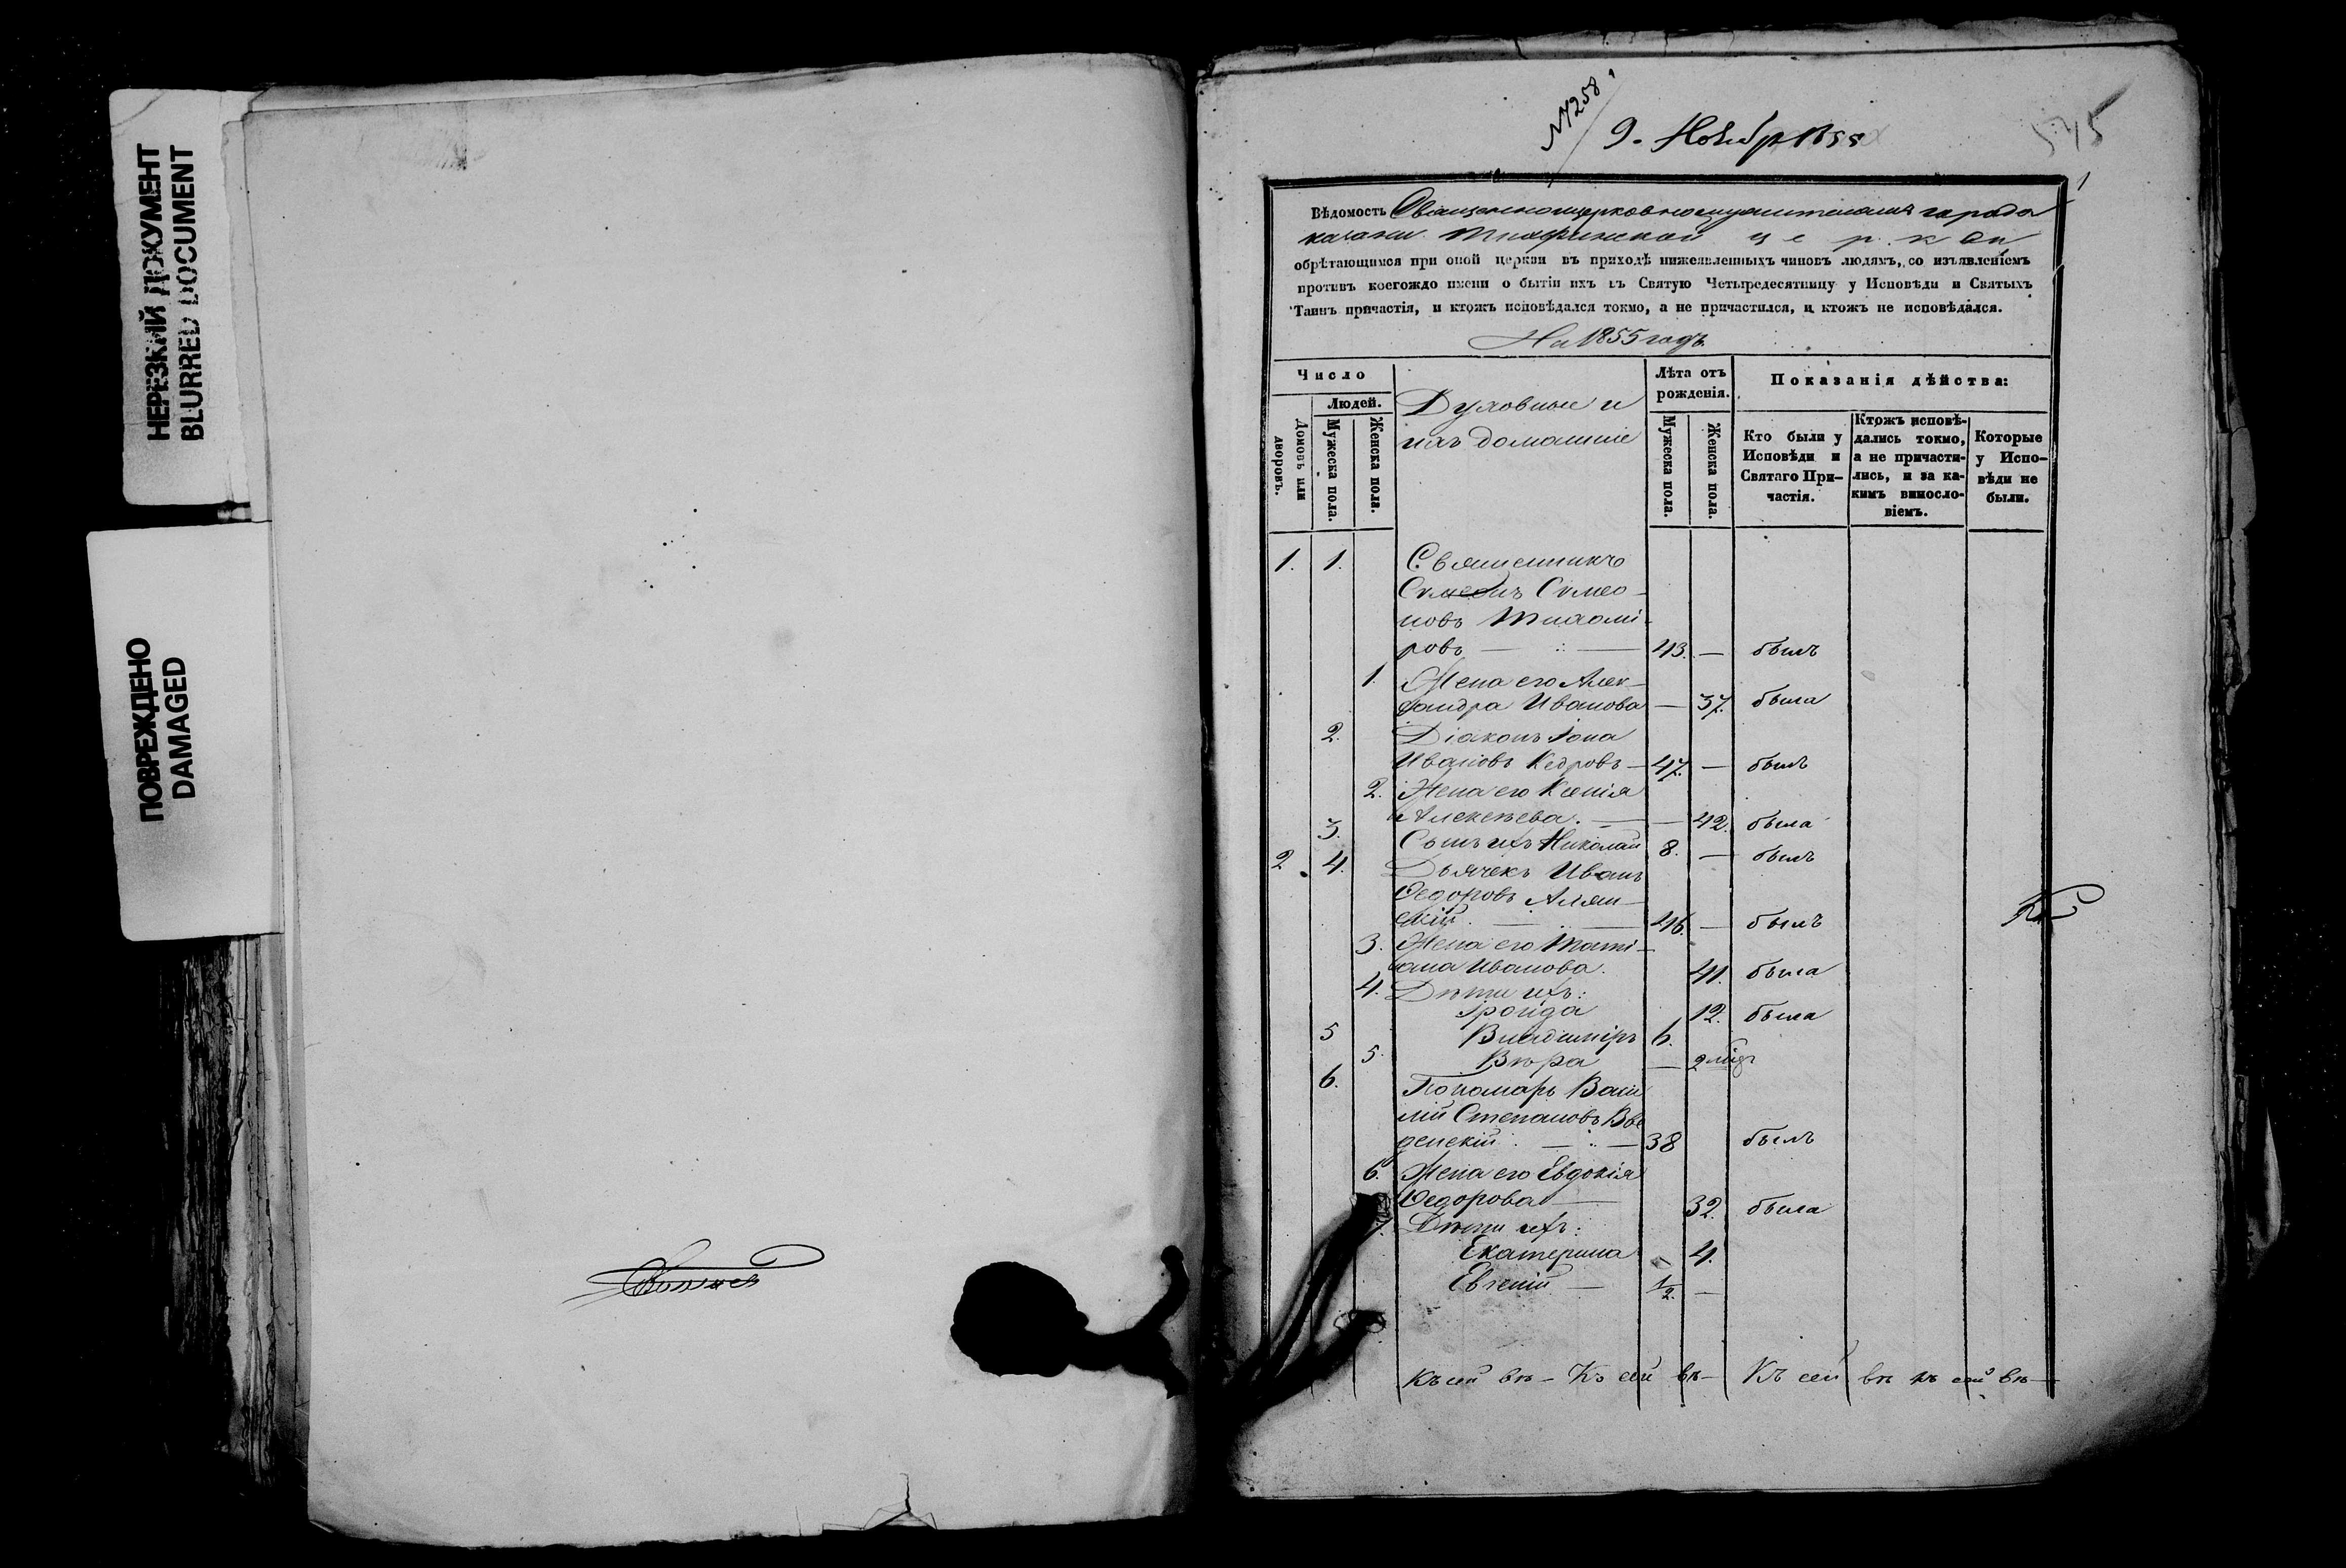 НЕРЕЗКИЙ ДОКУМЕНТ
BLURRED DOCUMENT
ПОВРЕЖДЕНО
DAMAGED
№ 7258
9. Ноября 1855
545
1
Вѣдомость Священноцерковнослужителей города
Казани Тихвинской церкви
обрѣтающимся при оной церкви въ приходѣ нижеявленныхъ чиновъ людямъ, со изъявленіемъ
противъ коегождо имени о бытіи ихъ въ Святую Четыредесятницу у Исповѣди и Святыхъ
Таинъ причастія, и ктожъ исповѣдался токмо, а не причастился, и ктожъ не исповѣдался.
На 1855 годъ
Число
Людей.
Домовъ или дворовъ.
Мужеска пола.
Женска пола.
Духовные и
ихъ домашніе
Лѣта отъ
рожденія.
Мужеска пола.
Женска пола.
Показанія дѣйства:
Кто были у
Исповѣди и
Святаго При-
частія.
Ктожъ исповѣ-
дались токмо,
а не причасти-
лись, и за ка-
кимъ виносло-
віемъ.
Которые
у Испо-
вѣди не
были.
1. 1. Священникъ
Симеонъ Симео-
новъ Тихомі-
ровъ — 43. — былъ
1. Жена его Алек-
сандра Иванова — 37. была
2. Діаконъ Іона
Ивановъ Кедровъ — 47. — былъ
2. Жена его Ксенія
Алексѣева. — — 42. была
3. Сынъ ихъ Николай 8. — былъ
2. 4. Дьячекъ Иванъ
Ѳедоровъ Алян-
скій — 46. — былъ
3. Жена его Таті-
ана Иванова. 41. была
4. Дѣти ихъ:
Іроида 12. была
5 Владиміръ 6.
5. Вѣра — 2 мѣс
6. Пономарь Васи
лій Степановъ Вве
денскій — 38 былъ
6. Жена его Евдокія
Ѳедорова — 32. была
Дѣти ихъ:
Екатерина — 4.
Евгеній — 1/2. —
Къ сей вѣ- Къ сей вѣ- Къ сей вѣ къ сей вѣ-